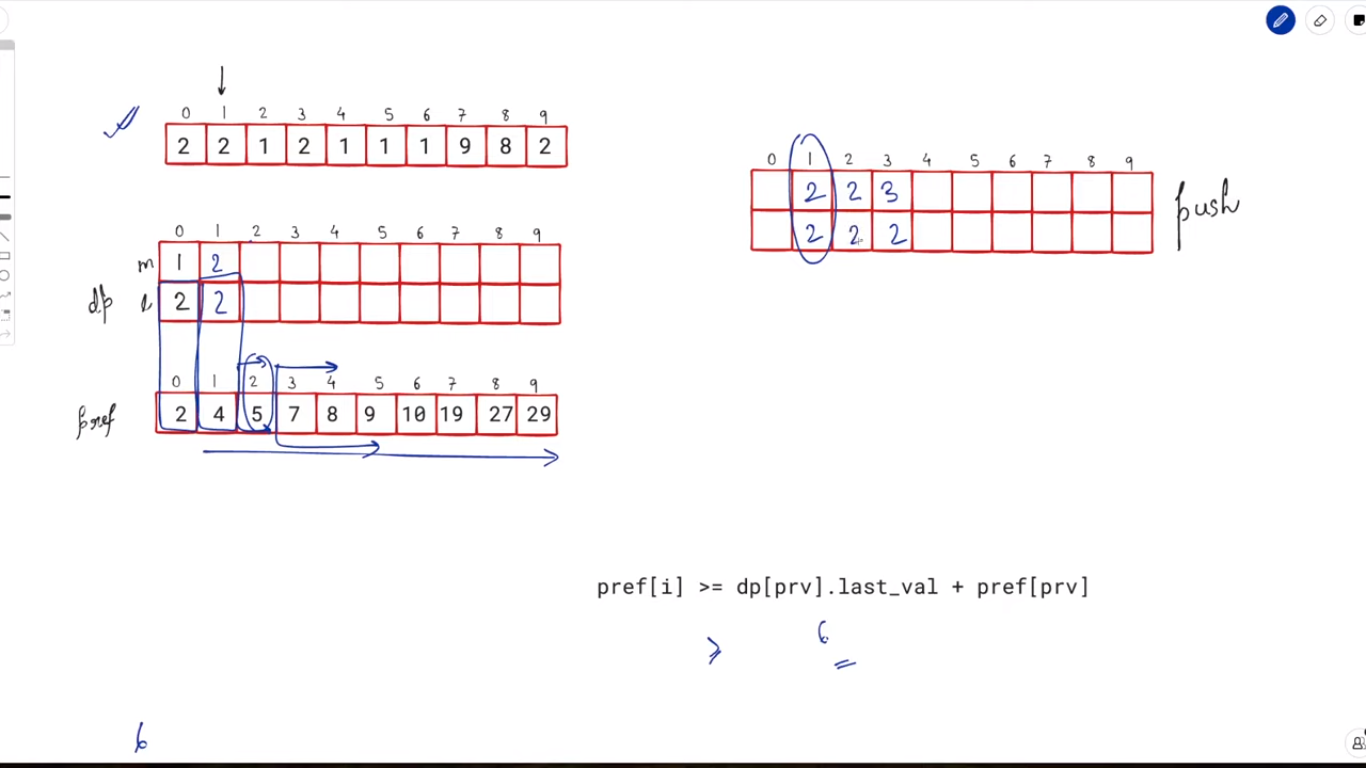 0 1 2 3 4 5 6 7 8 9
2 2 1 2 1 1 1 9 8 2
0 1 2 3 4 5 6 7 8 9
m 1 2
dp l 2 2
0 1 2 3 4 5 6 7 8 9
pref 2 4 5 7 8 9 10 19 27 29
0 1 2 3 4 5 6 7 8 9
2 2 3
push
2 2 2
pref[i] >= dp[prv].last_val + pref[prv]
≥ 6
6